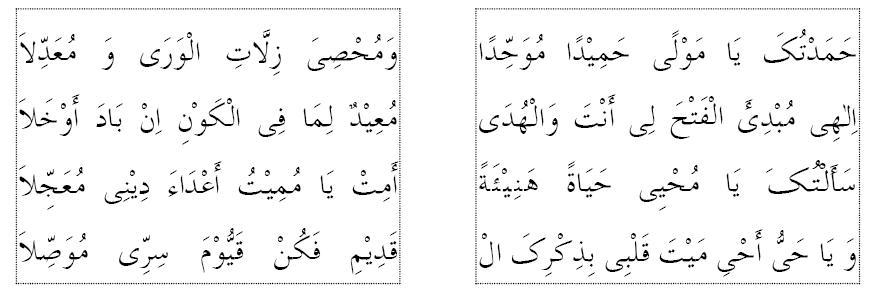 حَمَدْتُکَ یَا مَوْلًی حَمِیْدًا مُوَحِّدًا
وَمُحْصِیَ زِلَّاتِ الْوَرَی وَ مُعَدِّلاَ
اِلٰهِی مُبْدِئَ الْفَتْحَ لِی أَنْتَ وَالْهُدَی
مُعِیْدٌ لِمَا فِی الْکَوْنِ اِنْ بَادَ أَوْخَلاَ
سَأَلْتُکَ یَا مُحْیِی حَیَاةً هَنِیْئَةً
أَمِتْ یَا مُمِیْتُ أَعْدَاءَ دِیْنِی مُعَجِّلاَ
وَ یَا حَیُّ أَحْیِ مَیْتَ قَلْبِی بِذِکْرِکَ الْ
قَدِیْمِ فَکُنْ قَیُّوْمَ سِرِّی مُوَصِّلاَ